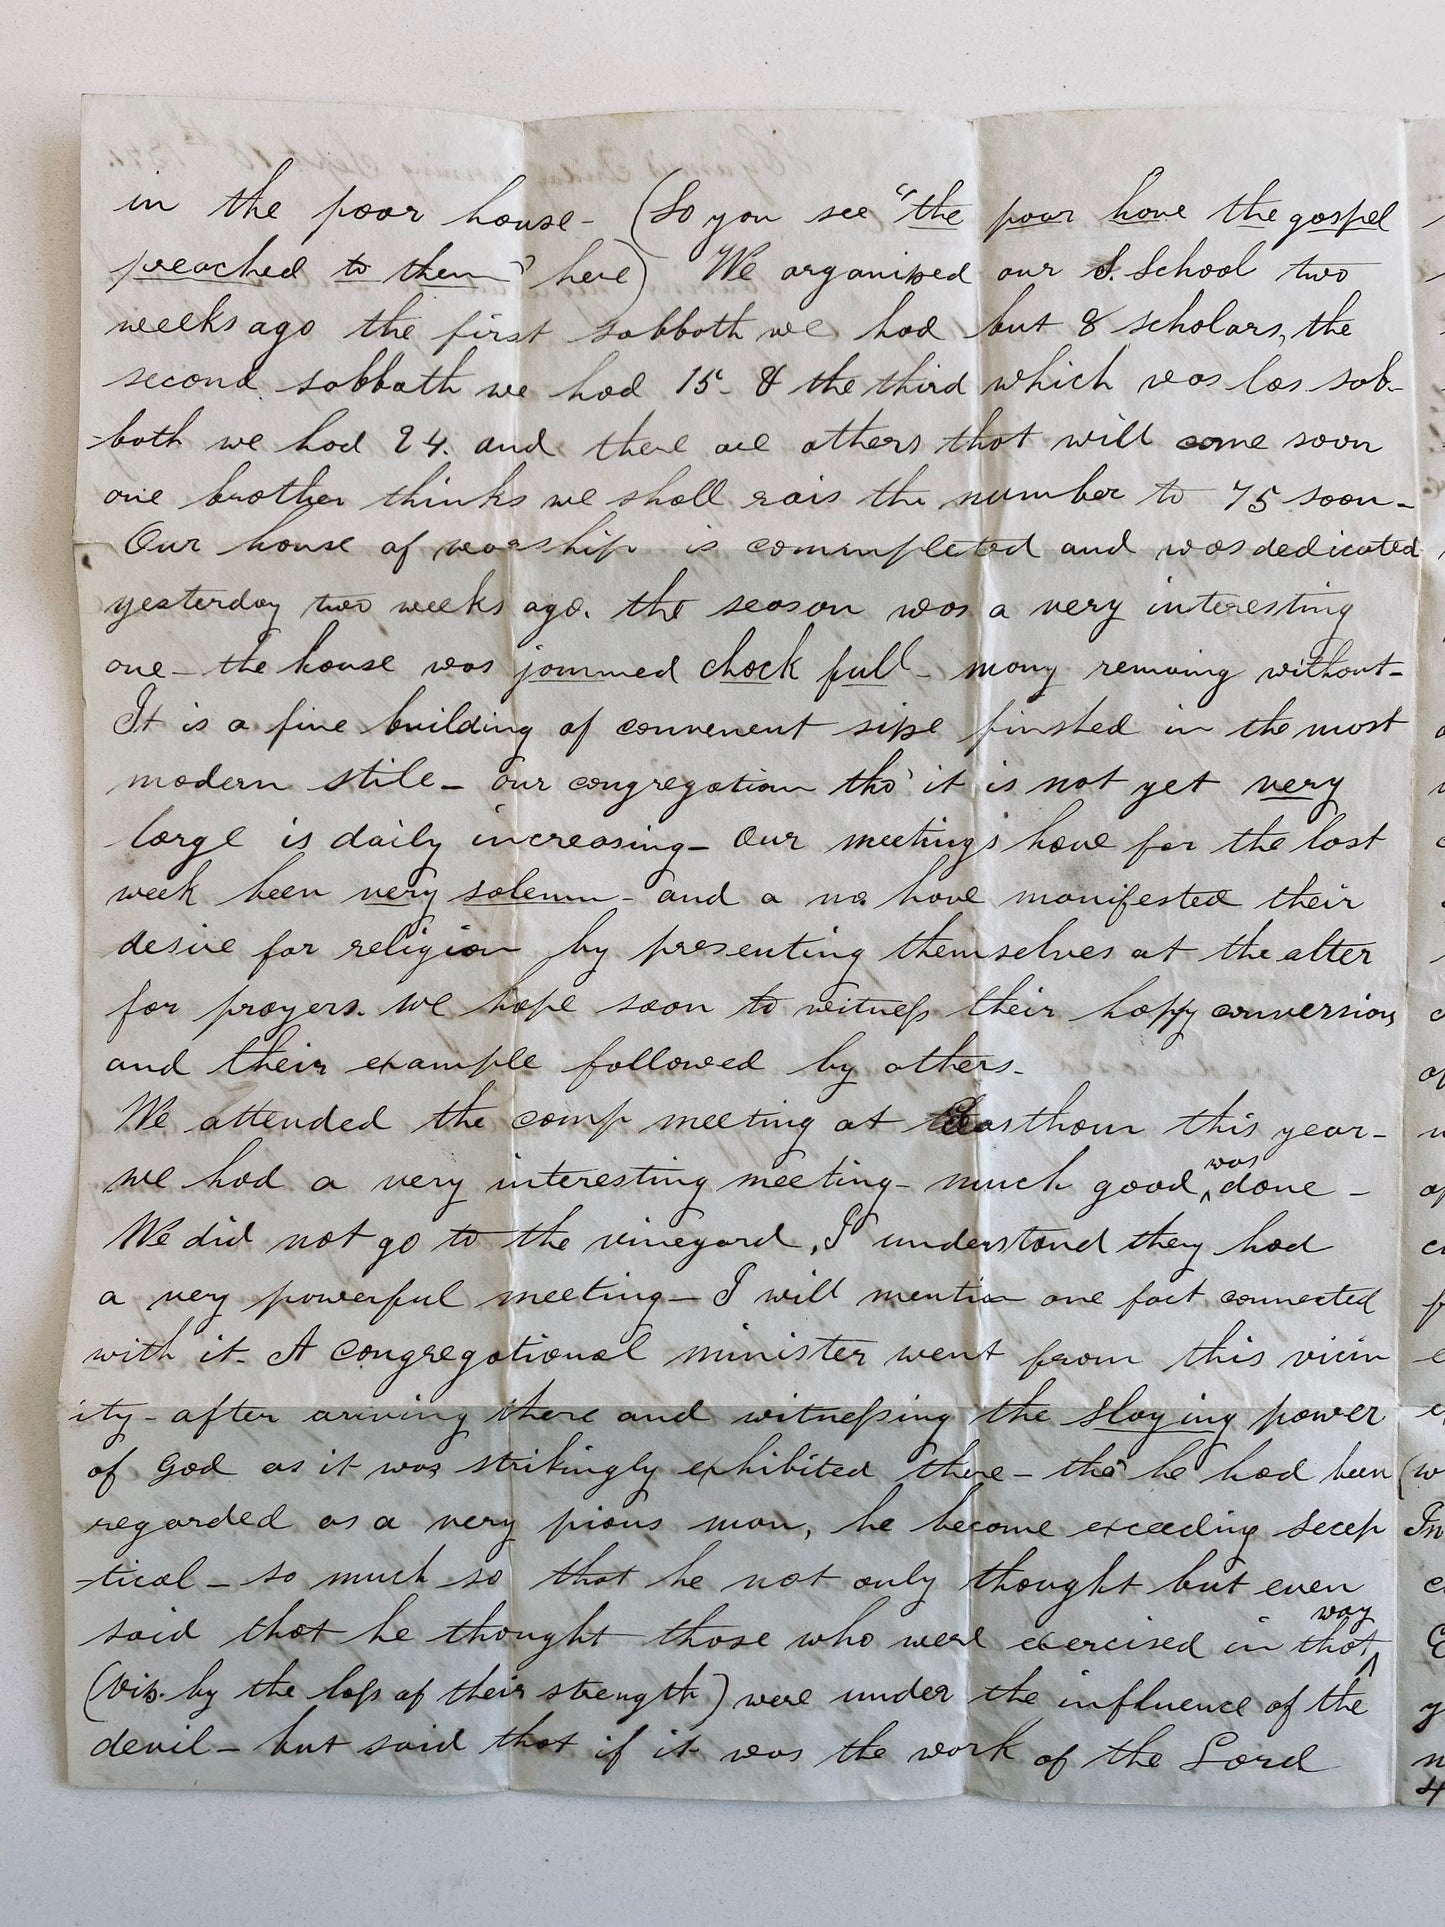 in the poor house- (So you see "the poor have the gospel
preached to them" here) We organized our S. School two
weeks ago the first sabbath we had but 8 scholars, the
second sabbath we had 15- & the third which was las sab-
-bath we had 24. and there are others that will come soon
one brother thinks we shall rais the number to 75 soon-
Our house of worship is commpleted and was dedicated
yesterday two weeks ago. the season was a very interesting
one- the house was jammed chock full- many remaing without-
It is a fine building of convenent size finshed in the most
modern stile- our congregation tho' it is not yet very
large is daily increasing- Our meetings have for the last
week been very solemn- and a no. have manifested their
desire for religion by presenting themselves at the alter
for prayers. we hope soon to witness their happy conversion
and their example followed by others-
We attended the camp meeting at Eastham this year-
we had a very interesting meeting- much good was done-
We did not go to the vineyard, I understand they had
a very powerful meeting- I will mention one fact connected
with it- A congregational minister went from this vicin
ity- after ariving there and witnessing the slaying power
of God as it was strikingly exhibited there- tho' he had been
regarded as a very pious man, he became exceeding scep
-tical- so much so that he not only thought but even
said that he thought those who were exercised in that way
(viz. by the loss of their strength) were under the influence of the
devil- but said that if it was the work of the Lord